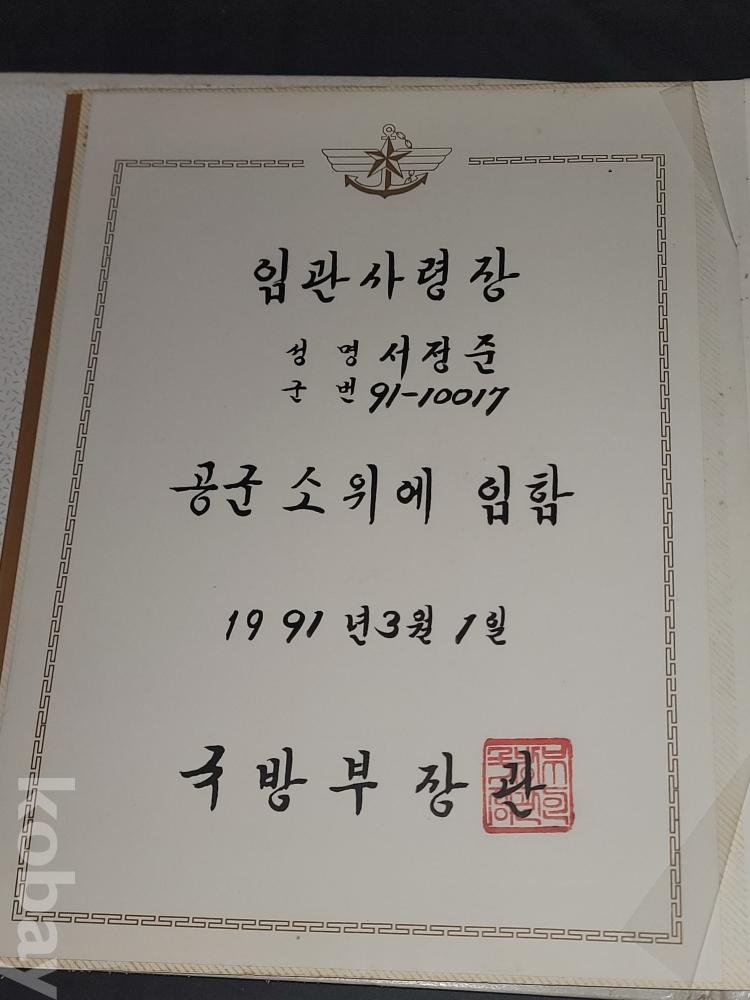 임관사령장
성 명 서정준
군 번 91-10017
공군 소위에 임함
1991년 3월 1일
국방부장관
kobay